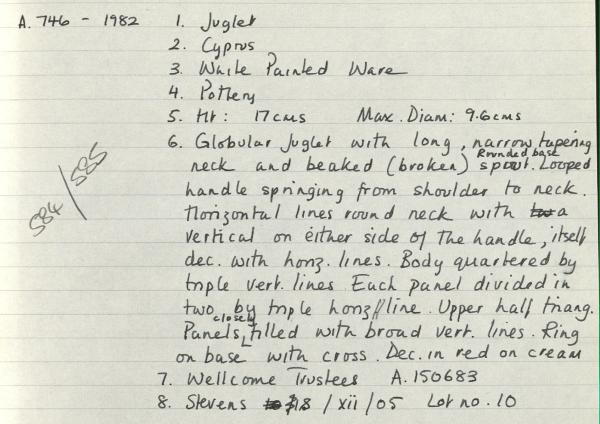 A. 746 - 1982
1. Juglet
2. Cyprus
3. White Painted Ware
4. Pottery
5. Ht: 17cms Max. Diam: 9.6cms
6. Globular Juglet with long, narrow tapering
neck and beaked (broken) spout. Rounded base Looped
handle springing from shoulder to neck.
Horizontal lines round neck with a
vertical on either side of the handle, itself
dec. with honz. lines. Body quartered by
triple vert. lines Each panel divided in
two by triple honz line. Upper half triang.
Panels closely filled with broad vert. lines. Ring
on base with cross. Dec. in red on cream
7. Wellcome Trustees A.150683
8. Stevens 18 / xii / 05 Lot no. 10
584/585